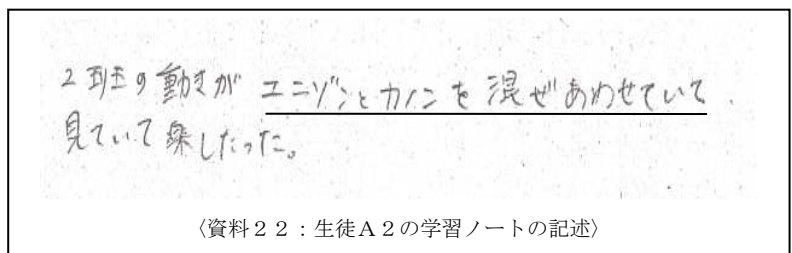 2班の動きがユニゾンとカノンを混ぜあわせていて
見ていて楽したった。
〈資料22:生徒A2の学習ノートの記述〉